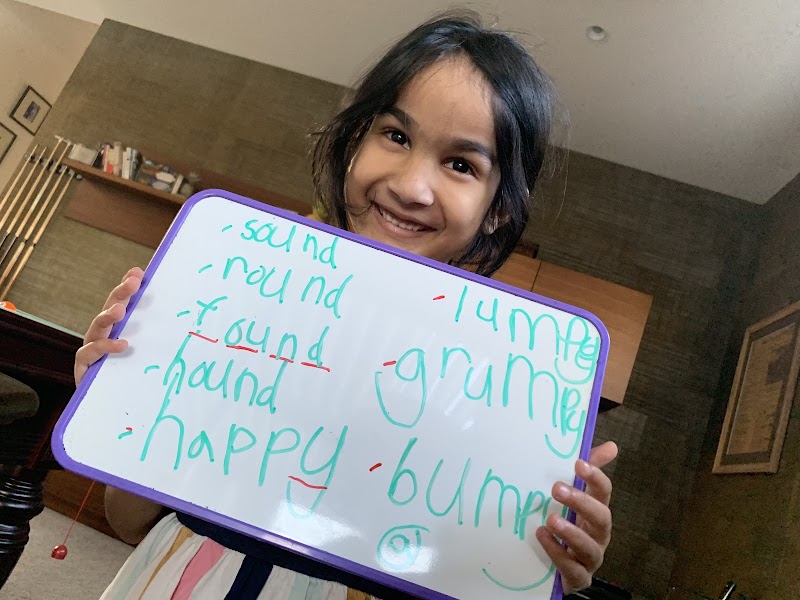 sound
round
found
hound
happy
lumpy
grumpy
bumpy